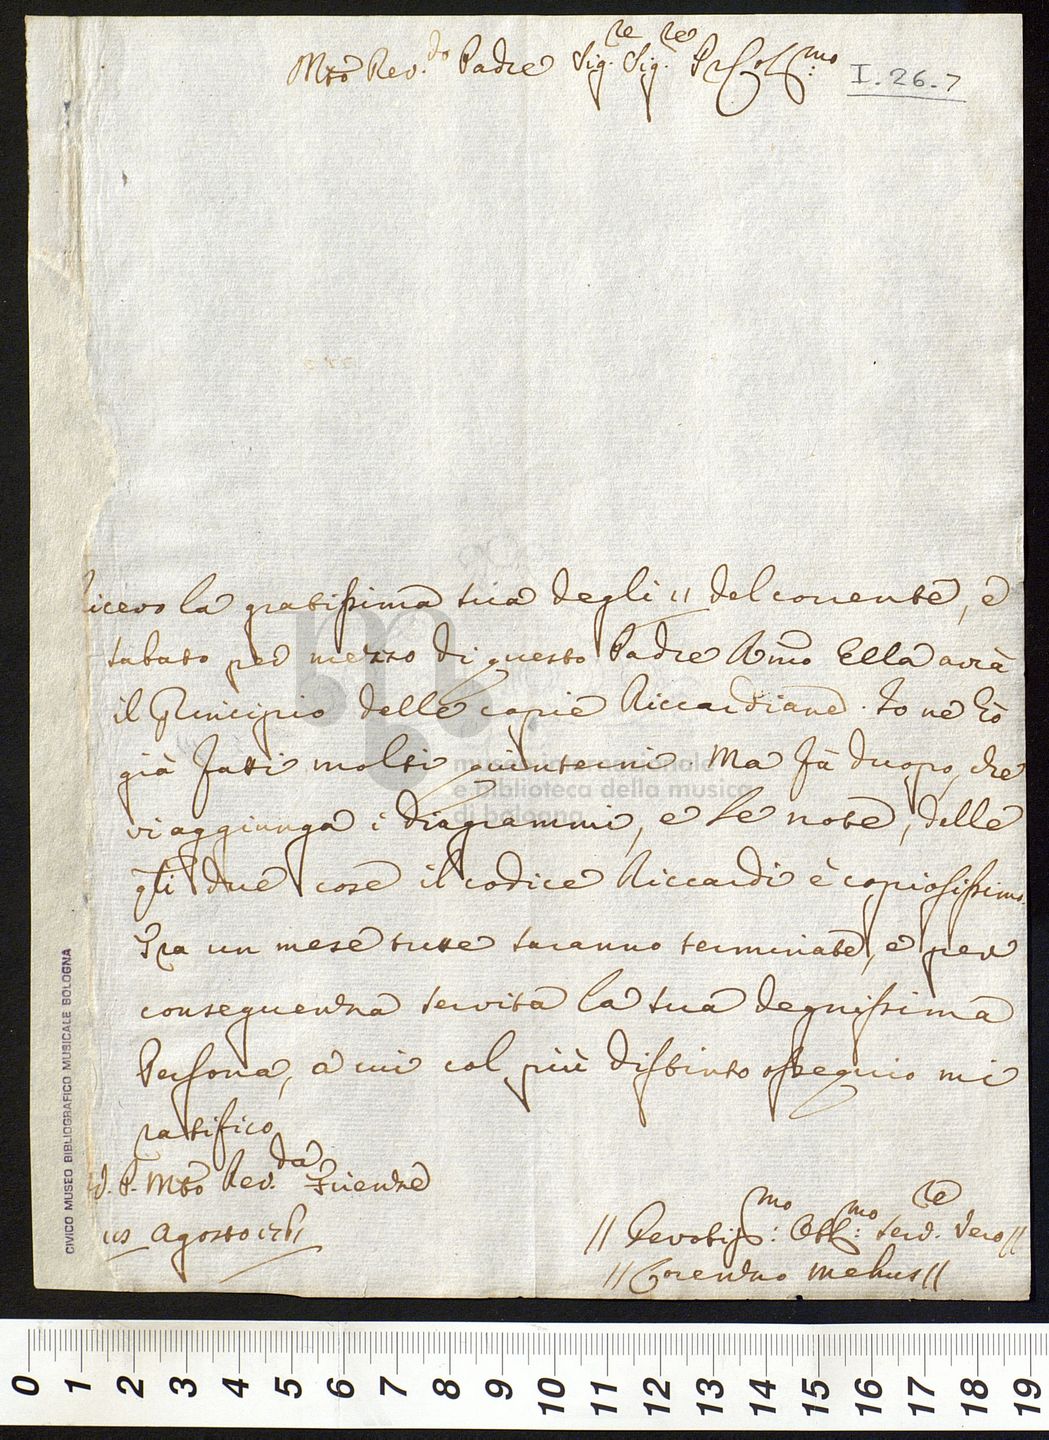 Mto Rev.do Padre Sig.re Sig.re P. Col.mo
I. 26. 7
Ricevo la gratissima sua degli 11 del corrente, e
sabato per mezzo di questo Padre Amo Ella avrà
il Principio delle copie Riccardiane. Io ne hò
già fatti molti quinterni. Ma fà duopo, che
vi aggiunga i diagrammi, e le note, delle
qli due cose il codice Riccardi è copiosissimo.
Fra un mese tutte saranno terminate, e per
conseguenza servita la sua degnissima
Persona, a cui col più distinto ossequio mi
ratifico
P. Mto Rev.da Firenze
Agosto 1761
// Devotiss:mo Obb:mo serv. vero //
// Lorenzo Mehus //
museo internazionale
e biblioteca della musica
di bologna
CIVICO MUSEO BIBLIOGRAFICO MUSICALE BOLOGNA
0 1 2 3 4 5 6 7 8 9 10 11 12 13 14 15 16 17 18 19